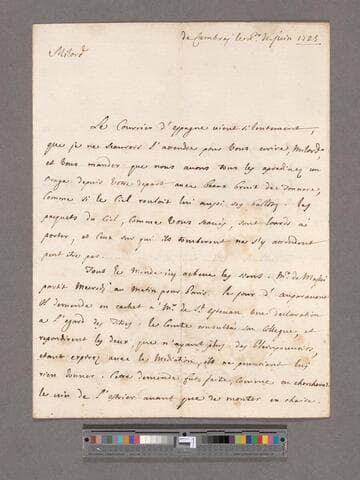 de Cambray le 6.e de Juin 1725
Milord
Le Courrier d'espagne vient si lentement,
que je ne sçaurois l'attendre pour vous ecrire, Milord,
et vous mander que nous avons tous les apresdinez un
orage depuis votre depart avec beau bruit de tonnerre,
Comme si le Ciel vouloit lui aussi ses
paquets du Ciel, comme vous sçavez, sont lourds a
porter, et ceux sur qui ils tomberont ne s'y attendent
peut etre pas.
Tout le monde icy acheve les siens. M.r de
partit Mercredi au matin pour Paris. le jour d'auparavant
il demanda en cachet a M.r de S.t une declaration
a l'egard des Titres. le Comte consulta son Collegue et
repondirent les deux, que n'ayant plus des Plenipotenciaires,
etant expirez avec la Mediation, ils ne pouvoient luy
rien donner. Cette demande fut faite, comme on cherche
le vin de l'etrier avant que de monter en chaise.